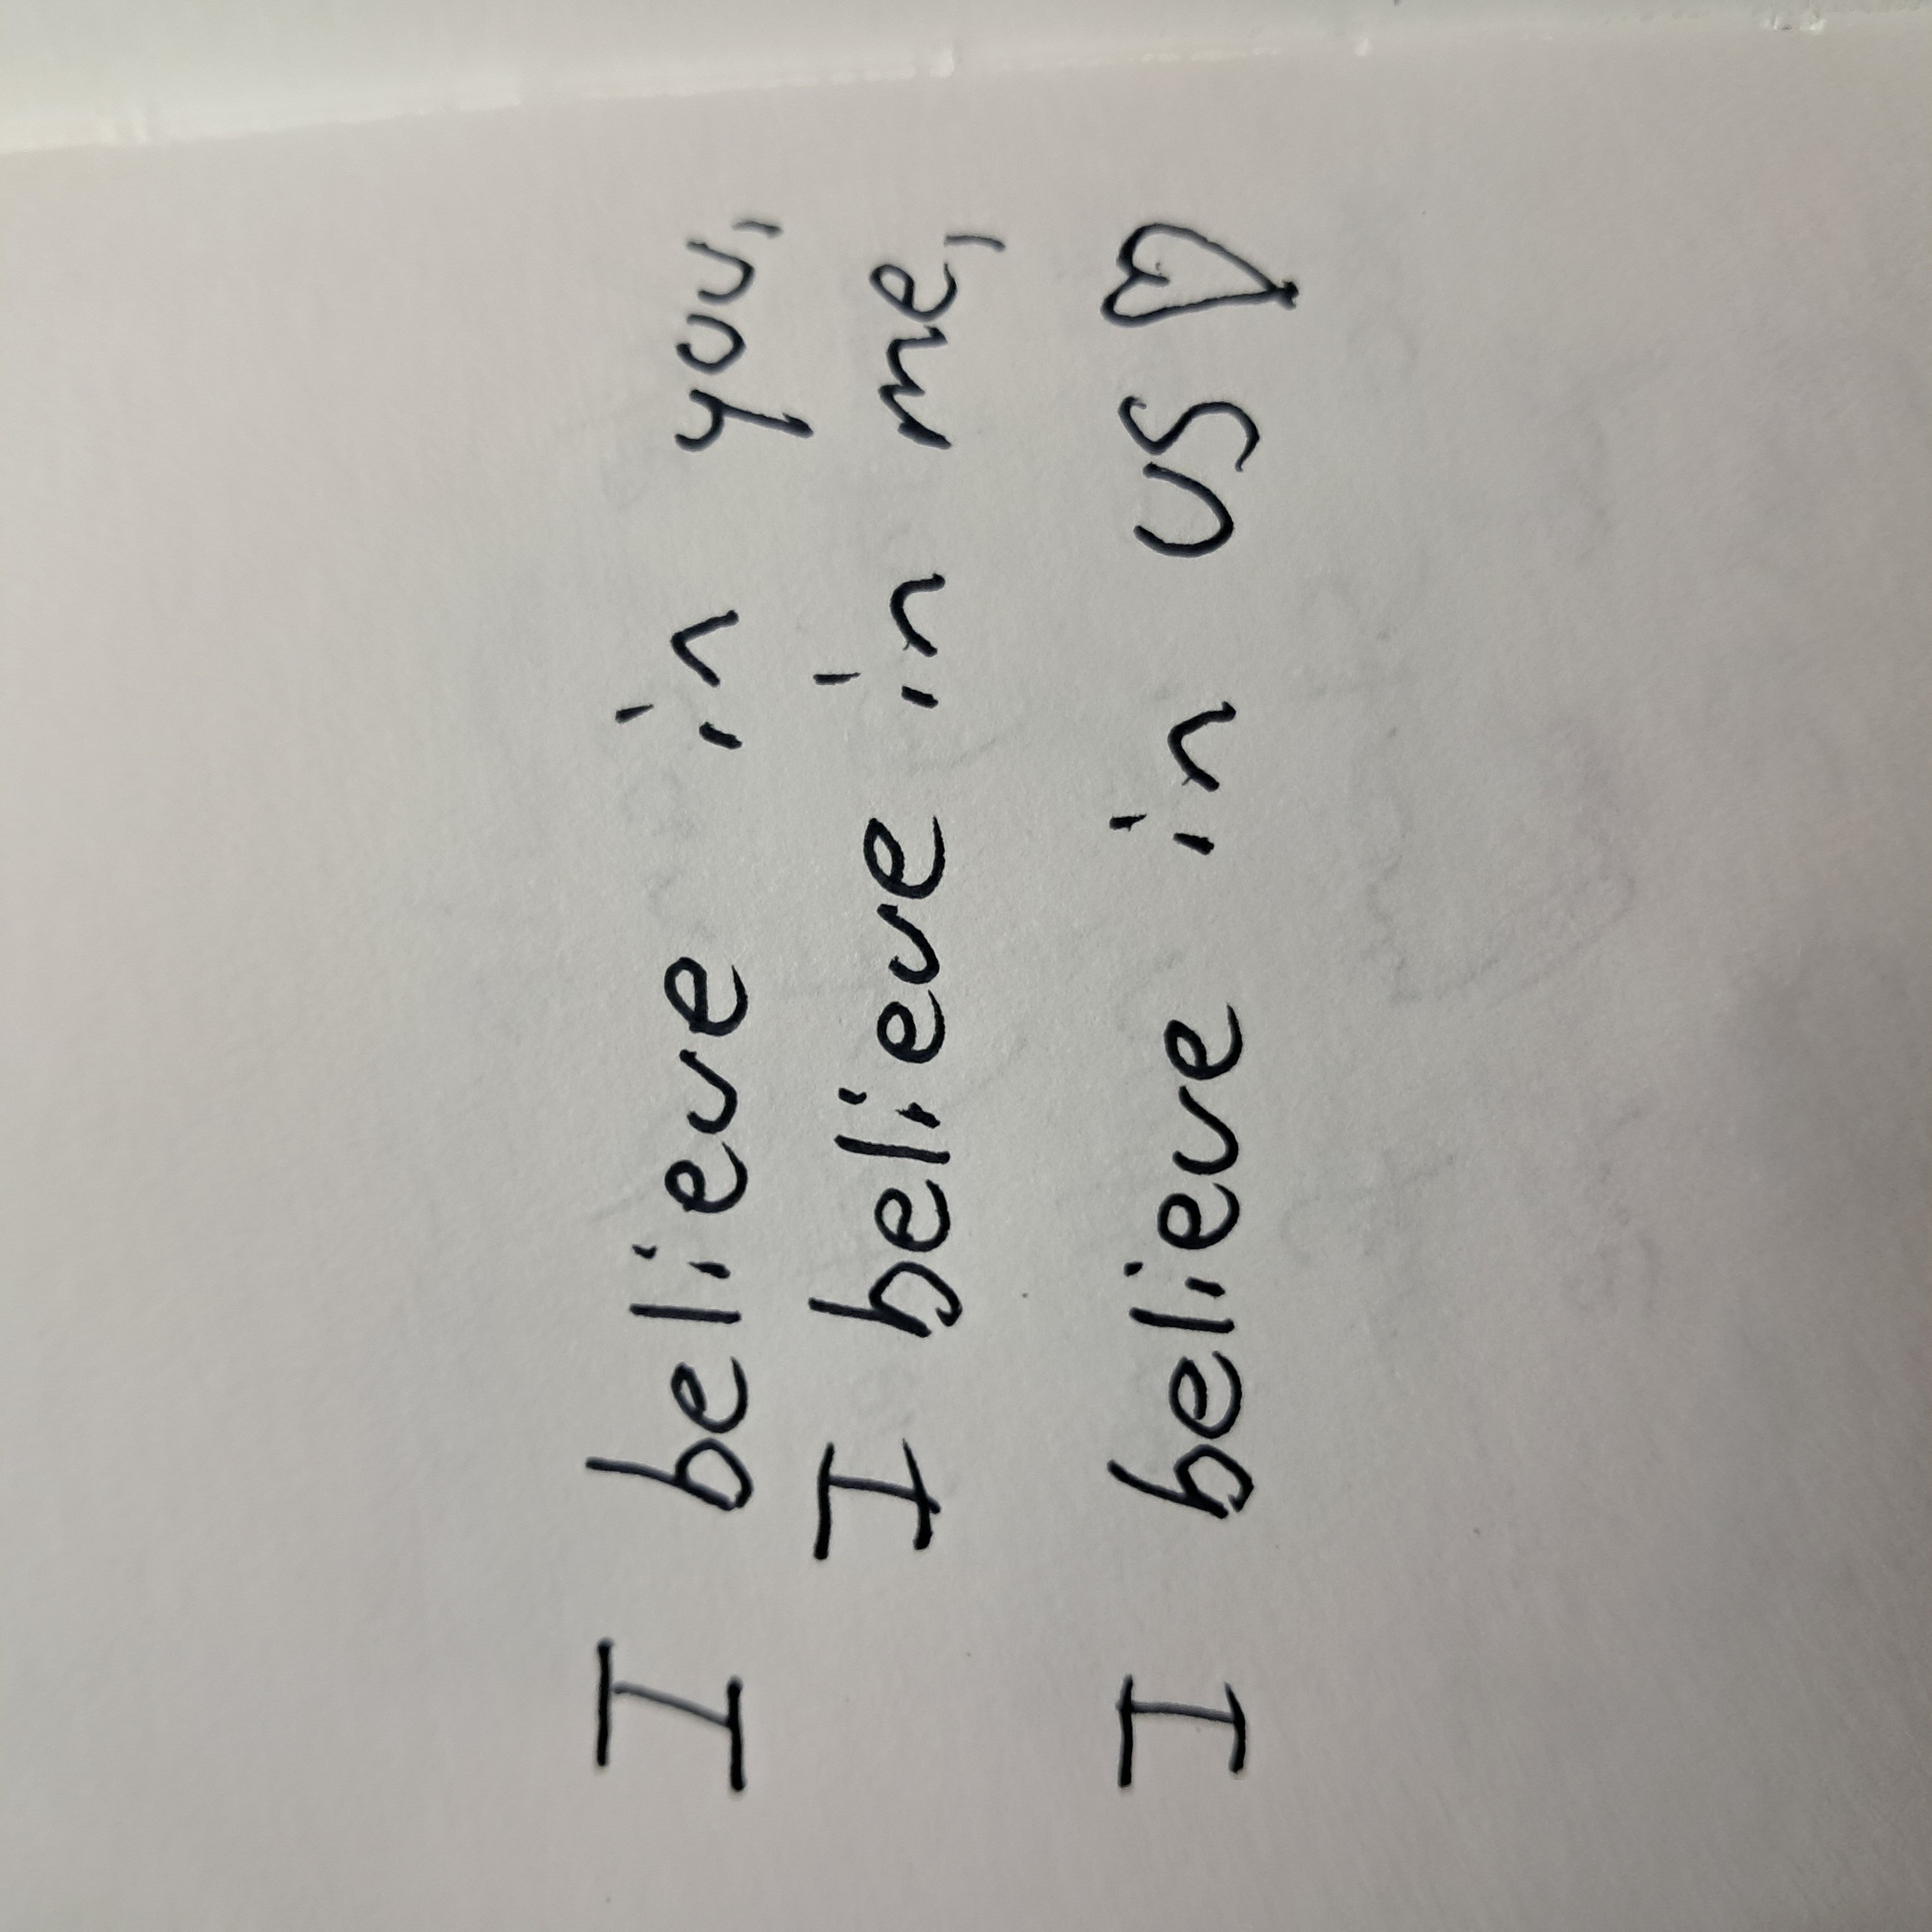 I believe in you,
I believe in me,
I believe in us ♡